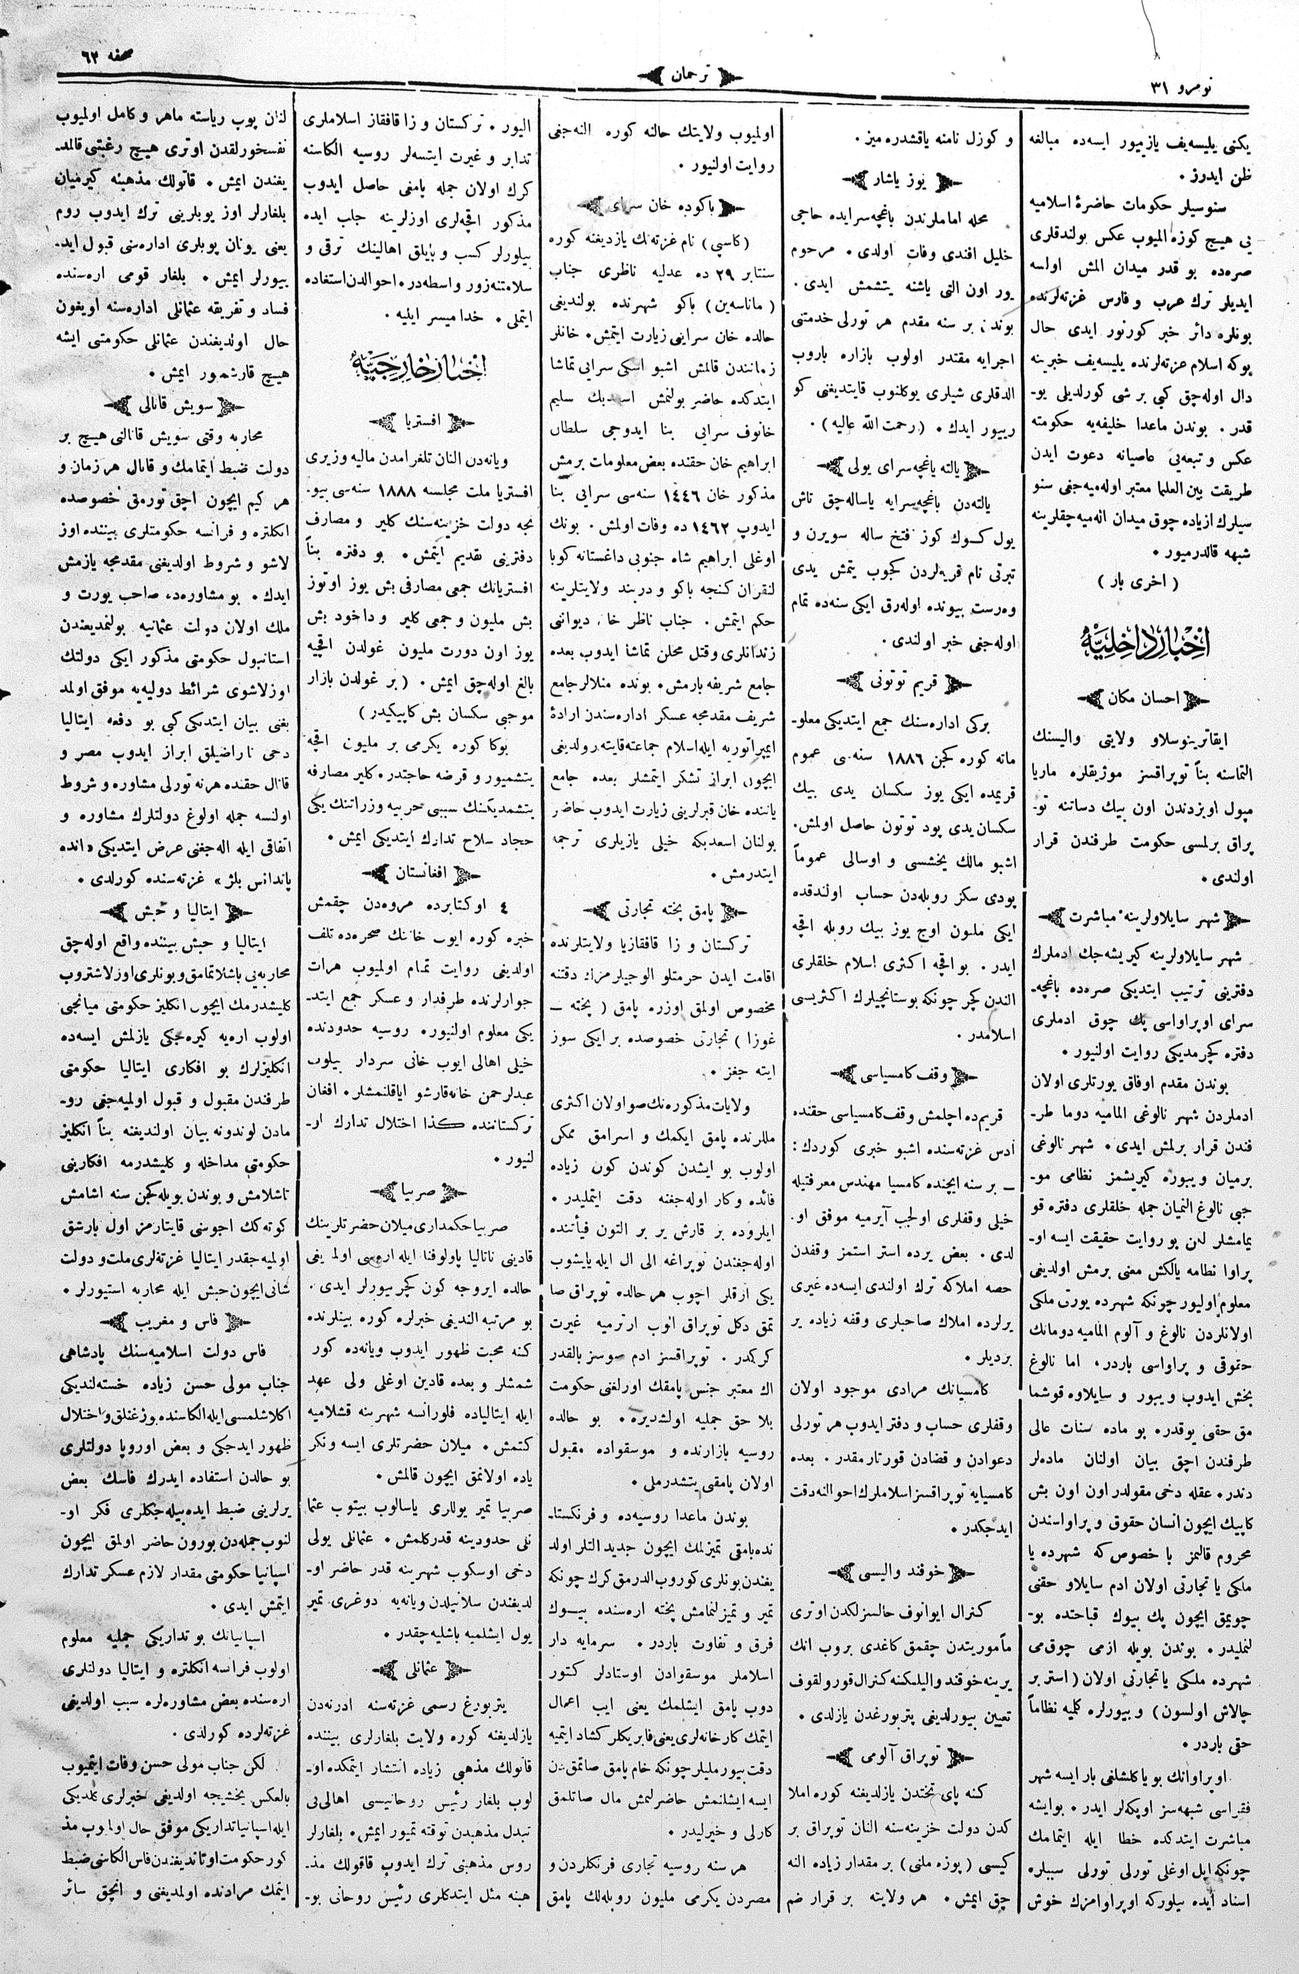 نومرو ٣١
ترجمان
صحفه ٦٢
یكنی یلیسه‌یف یازییور ایسه‌ده مبالغه
ظن ایدرز.
سنوسیلر حكومات حاضرۀ اسلامیه
یی هیچ كوزه المیوب عكس بولندقلری
صره‌ده بو قدر میدان المش اولسه
ایدیلر ترك عرب و فارس غزته‌لرنده
بونلره دائر خبر كورنور ایدی حال
بوكه اسلام غزته‌لرنده یلیسه‌یف خبرینه
دال اوله‌جق كبی بر شی كورلدیلی یو-
قدر. بوندن ماعدا خلیفه‌یه حكومته
عكس و تبعه‌یی عاصیانه دعوت ایدن
طریقت بین العلما معتبر اوله‌میه‌جغی سنو
سیلرك ازیاده چوق میدان اله‌میه‌چقلرینه
شبهه قالدرمیور.
( اخری بار )
اخبار داخلیه
احسان مكان
ایقاترینوسلاو ولایتی والیسنك
التماسنه بناً توپراقسز موژیقلره ماریا
مپول اویزدندن اون بیك دساتنه تو-
پراق برلمسی حكومت طرفندن قرار
اولندی.
شهر سایلاولرینه مباشرت
شهر سایلاولرینه كیریشه‌جك ادملرك
دفترینی ترتیب ایتدیكی صره‌ده باغچه-
سرای اوپراواسی پك چوق ادملری
دفتره كچرمدیكی روایت اولنیور.
بوندن مقدم اوفاق یورتلری اولان
ادملردن شهر نالوغی المامیه دوما طر-
فندن قرار برلمش ایدی. شهر نالوغی
برمیان و ییبوره كیریشمز نظامی مو-
جبی نالوغ النمیان جمله خلقلری دفتره قو
یمامشلر لكن بو روایت حقیقت ایسه او-
پراوا نظامه یاكلش معنی برمش اولدیغی
معلوم اولیور چونكه شهرده یورتی ملكی
اولانلردن نالوغ و آلوم المامیه دومانك
حقوقی و پراواسی باردر، اما نالوغ
بخش ایدوب و ییور و سایلاوه قوشما
مق حقی یوقدر. بو ماده سنات عالی
طرفندن اچق بیان اولنان ماده‌لر
دندر. عقله دخی مقولدر اون اون بش
كاپیك ایچون انسان حقوق و پراواسندن
محروم قالنمز با خصوص كه شهرده یا
ملكی یا تجارتی اولان ادم سایلاو حقنی
چویمق ایچون پك بیوك قباحتده بو-
لنملیدر. بوندن بویله ازمی چوق‌می
شهرده ملكی یا تجارتی اولان (استر بر
چالاش اولسون) و ییبورلره كلیه نظاماً
حقی باردر.
اوپراوانك بو یاكلشلغی بار ایسه شهر
فقراسی شبهه‌سز اوپكه‌لر ایدر. بوایشه
مباشرت ایتدكده خطا ایله ایتمامك
چونكه ایل اوغلی تورلی تورلی سببلره
اسناد ایده بیلورکه اوپراوامزك خوش
و كوزل نامنه یاقشدره میز.
یوز یاشار
محله امامارندن باغچه‌سرایده حاجی
خلیل افندی وفات اولدی. مرحوم
یوز اون التی یاشنه یتشمش ایدی.
بوندن بر سنه مقدم هر تورلی خدمتی
اجرایه مقتدر اولوب بازاره باروب
الدقلری شیلری یوكلنوب قایتدیغنی كو
رییور ایدك. (رحمت الله عالیه).
یالته باغچه‌سرای یولی
یالته‌دن باغچه‌سرایه یاساله‌جق تاش
یول كسوك كوز فتخ ساله سویرن و
تبرتی نام قریه‌لردن كچوب یتمش یدی
وه‌رست بیونده اوله‌رق ایكی سنه‌ده تمام
اوله‌جغی خبر اولندی.
قریم توتونی
بركی اداره‌سنك جمع ایتدیكی معلو-
ماته كوره كچن ١٨٨٦ سنه‌سی عموم
قریمده ایكی یوز سكسان یدی بیك
سكسان یدی پود توتون حاصل اولمش.
اشبو مالك یخشسی و اوسالی عموماً
پودی سكز روبله‌دن حساب اولندقده
ایكی ملیون اوچ یوز بیك روبله اقچه
ایدر. بو اقچه اكثری اسلام خلقلری
الندن كچر چونكه بوستانچیلرك اكثریسی
اسلامدر.
وقف كامسیاسی
قریمده اچلمش وقف كامسیاسی حقنده
ادس غزته‌سنده اشبو خبری كوردك:
— بر سنه ایچنده كامسیا مهندس معرفتیله
خیلی وقفلری اولجب آیرمیه موفق او-
لدی. بعض یرده استر استمز وقفدن
حصه املاكه ترك اولندی ایسه‌ده غیری
یرلرده املاك صاحبلری وقفه زیاده یر
بردیلر.
كامسیانك مرادی موجود اولان
وقفلری حساب و دفتر ایدوب هر تورلی
دعوادن و قضادن قورتارمقدر. بعده
كامسیایه توپراقسز اسلاملرك احوالنه دقت
ایدجكدر.
خوقند والیسی
كنرال ایوانوف حالسزلكدن اوتری
مأموریتدن چقمق كاغدی بروب انك
یرینه خوقند والیلكنه كنرال قورولقوف
تعیین بیورلدیغی پتربورغدن یازلدی.
توپراق آلومی
كنه پای تختدن یازلدیغنه كوره املا
كدن دولت خزینه‌سنه النان توپراق بر
كیسی (پوزه ملنی) بر مقدار زیاده النه
جق ایمش. هر ولایته بر قرار ضم
اولمیوب ولایتك حالنه كوره النه‌جغی
روایت اولنیور.
باكوده خان سرای
(كاسپی) نام غزته‌نك یازدیغنه كوره
سنتابر ٢٩ ده عدلیه ناظری جناب
(ماناسه‌ین) باكو شهرنده بولندیغی
حالده خان سراینی زیارت ایتمش. خانلر
زمانندن قالمش اشبو اسكی سرایی تماشا
ایتدكده حاضر بولنمش اسدبك سلیم
خانوف سرایی بنا ایدوجی سلطان
ابراهیم خان حقنده بعض معلومات برمش
مذكور خان ١٤٤٦ سنه‌سی سرایی بنا
ایدوپ ١٤٦٢ ده وفات اولمش. بونك
اوغلی ابراهیم شاه جنوبی داغستانه كوبا
لنقران كنجه باكو و دربند ولایتلرینه
حكم ایتمش. جناب ناظر خان دیواننی
زندانلری و قتل محلن تماشا ایدوب بعده
جامع شریفه بارمش. بونده منلالر جامع
شریف مقدمجه عسكر اداره‌سندن ارادۀ
ایمپراتوریه ایله اسلام جماعته قایته رولدیغی
ایچون ابراز تشكر ایتمشلر بعده جامع
یاننده خان قبرلرینی زیارت ایدوب حاضر
بولنان اسعدبكه خیلی یازیلری ترجمه
ایتدرمش.
پامق پخته تجارتی
تركستان و زا قافقازیا ولایتلرنده
اقامت ایدن حرمتلو الوجیلرمزك دقتنه
مخصوص اولمق اوزره پامق ( پخته —
غوزا ) تجارتی خصوصده بر ایكی سوز
ایته جغز.
ولایات مذكوره‌نك صو اولان اكثری
مللرنده پامق ایكمك و اسرامق ممكن
اولوب بو ایشدن كوندن كون زیاده
فائده و كار اوله‌جغنه دقت ایتملیدر.
ایلروده بر قارش یر بر التون فیأتنده
اوله‌جغندن توپراغه الی ال ایله یاپشوب
یكی ازقلر اچوب هر حالده توپراق صا
تمق دكل توپراق الوب ارترمیه غیرت
كركدر. توپراقسز ادم صوسز بالقدر
اك معتبر جنس پامقك اورلغنی حكومت
بلا حق جملیه اولشدیره. بو حالده
روسیه بازارنده و موسقواده مقبول
اولان پامقی یتشدرملی.
بوندن ماعدا روسیه‌ده و فرنكستا-
نده پامقی تمیزلمك ایچون جدید التلر اولد
یغندن بونلری كوروب الدرمق كرك چونكه
تمیر و تمیزلنمامش پخته اره‌سنده بیوك
فرق و تفاوت باردر. سرمایه دار
اسلاملر موسقوادن اوستادلر كتور
دوب پامق ایشلمك یعنی ایب اعمال
ایتمك كارخانه‌لری یعنی فابریكلر كشاد ایتمیه
دقت بیورملیلر چونكه خام پامق صاتمقدن
ایسه ایشلنمش حاضرلنمش مال صاتلمق
كارلی و خیرلیدر.
هر سنه روسیه تجاری فرنكلردن و
مصردن یكرمی ملیون روبله‌لك پامق
الیور. تركستان و زا قافقاز اسلاملری
تدابر و غیرت ایتسه‌لر روسیه الكاسنه
كرك اولان جمله پامقی حاصل ایدوب
مذكور اقچه‌لری اوزلرینه جلب ایده
بیلورلر كسب و بایلق اهالینك ترقی و
سلامتنه زور و اسطه‌در. احوالدن استفاده
ایتملی. خدا میسر ایلیه.
اخبار خارجیه
افستریا
ویانه‌دن النان تلغرامدن مالیه وزیری
افستریا ملت مجلسنه ١٨٨٨ سنه‌سی بیو-
نجه دولت خزینه‌سنك كلیر و مصارف
دفترینی تقدیم ایتمش. بو دفتره بناً
افستریانك جمی مصارفی بش یوز اوتوز
بش ملیون و جمی كلیر و داخود بش
یوز اون دورت ملیون غولدن اقچیه
بالغ اوله‌جق ایمش. (بر غولدن بازار
موجبی سكسان بش كاپیكیدر)
بوكا كوره یكرمی بر ملیون اقچه
یتشمیور و قرضه حاجتدر. كلیر مصارفه
یتشمدیكنك سببی حربیه وزراتنك یكی
حجاد سلاح تدارك ایتدیكی ایمش.
افغانستان
٤ اوكتابرده مروه‌دن چقمش
خبره كوره ایوب خانك صحره‌ده تلف
اولدیغی روایت تمام اولمیوب هرات
جوارلرنده طرفدار و عسكر جمع ایتد-
یكی معلوم اولنیور. روسیه حدودنده
خیلی اهالی ایوب خانی سردار بیلوب
عبدلرحمن خانه قارشو ایاقلنمشلر. افغان
تركستاننده كذا اختلال تدارك او-
لنیور.
صربیا
صربیا حكمداری میلان حضرتلرینك
قادینی ناتالیا پاولوفنا ایله اره‌سی اولمدیغی
حالده ایروجه كون كچرییورلر ایدی.
بو مرتبه النديغی خبرلره كوره بینلرنده
كنه محبت ظهور ایدوب ویانه‌ده كور
شمشلر و بعده قادین اوغلی ولی عهد
ایله ایتالیاده فلورانسه شهرینه قشلامیه
كتمش. میلان حضرتلری ایسه ونكر
یاده اولانمق ایچون قالمش.
صربیا تمیر یوللری یاسالوب بیتوب عثما
نلی حدودینه قدر كلمش. عثمانلی یولی
دخی اوسكوب شهرینه قدر حاضر او-
لدیغندن سلانیلدن ویانه‌یه دوغری تمیر
یول ایشلمیه باشلیه‌چقدر.
عثمانلی
پتربورغ رسمی غزته‌سنه ادرنه‌دن
یازلدیغنه كوره ولایت بلغارلری بیننده
قاتولك مذهبی زیاده انتشار ایتمكده او-
لوب بلغار رئیس روحانیسی اهالی‌یی
تبدل مذهبدن توقته تمیور ایمش. بلغارلر
روس مذهبنی ترك ایدوپ قاقولك مذ-
هبنه مثل ایتدكلری رئیس روحانی بو-
لنان پوپ ریاسته ماهر و كامل اولمیوب
نفسخورلقدن اوتری هیچ رغبتی قالمد-
یغندن ایمش. قاتولك مذهبنه كیرمیان
بلغارلر اوز پوپلرینی ترك ایدوب روم
یعنی یونان پوپلری اداره‌سنی قبول اید-
ییورلر ایمش. بلغار قومی اره‌سنده
فساد و تفریقه عثمانلی اداره‌سنه اویغون
حال اولدیغندن عثمانلی حكومتی ایشه
هیچ قارشمیور ایمش.
سویش قانالی
محاربه وقتی سویش قانالنی هیچ بر
دولت ضبط ایتمامك و قانال هر زمان و
هر كیم ایچون اچق تورمق خصوصده
انكلتره و فرانسه حكومتلری بیننده اوز
لاشو و شروط اولدیغنی مقدمجه یازمش
ایدك. بو مشاوره‌ده صاحب یورت و
ملك اولان دولت عثمانیه بولنمدیغندن
استانبول حكومتی مذكور ایكی دولتك
اوزلاشوی شرائط دولیه‌یه موفق اولمد
یغنی بیان ایتدیكی كبی بو دفعه ایتالیا
دخی ناراضیلق ابراز ایدوب مصر و
قانال حقنده هر نه تورلی مشاوره و شروط
اولنسه جمله اولوغ دولتلرك مشاوره و
اتفاقی ایله اله‌جغنی عرض ایتدیكی «انده
پاندانس بلژ» غزته‌سنده كورلدی.
ایتالیا و حبش
ایتالیا و حبش بیننده واقع اوله‌جق
محاربه‌یی باشلاتمامق و بونلری اوزلاشتروب
كلیشدرمك ایچون انكلیز حكومتی میانجی
اولوب اره‌یه كیره‌جكی یازلمش ایسه‌ده
انكلیزلرك بو افكاری ایتالیا حكومتی
طرفندن مقبول و قبول اولمیه‌جغی رو-
مادن لوندونه بیان اولندیغنه بناً انكلیز
حكومتی مداخله و كلیشدرمه افكارینی
تاشلامش و بوندن بویله كچن سنه اشامش
كوته‌كك اجوسنی قایتارمز اول بارشق
اولمیه جقدر ایتالیا غزته‌لری ملت و دولت
شانی ایچون حبش ایله محاربه استیورلر.
فاس و مغریب
فاس دولت اسلامیه‌سنك پادشاهی
جناب مولی حسن زیاده خسته‌لندیكی
اكلاشلمسی ایله الكاسنده بوزغنلق و اختلال
ظهور ایدجكی و بعض اوروپا دولتلری
بو حالدن استفاده ایدرك فاسك بعض
یرلرینی ضبط ایده‌بیله جكلری فكر او-
لنوب جمله‌دن بورون حاضر اولمق ایچون
اسپانیا حكومتی مقدار لازم عسكر تدارك
ایتمش ایدی.
اسپانیانك بو تداریكی جملیه معلوم
اولوب فرانسه انكلتره و ایتالیا دولتلری
اره‌سنده بعض مشاوره‌لره سبب اولدیغی
غزته‌لرده كورلدی.
لكن جناب مولی حسن وفات ایتمیوب
بالعكس یخشیجه اولدیغی خبرلری كلدیكی
ایله اسپانیا تداریكی موفق حال اولمیوب مذ
كور حكومت اوتاندیغندن فاس الكاسنی ضبط
ایتمك مرادنده اولمدیغنی و انجق سائر